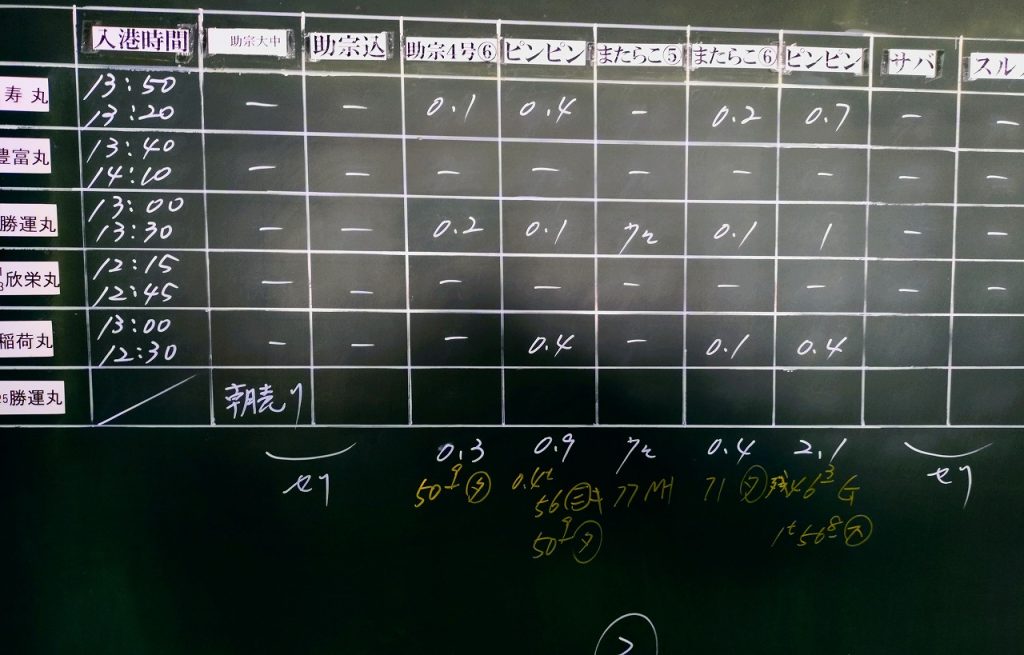 入港時間 助宗大中 助宗込 助宗4号⑥ ピンピン またらこ⑤ またらこ⑥ ピンピン サバ スル
寿丸 13:50 — — 0.1 0.4 — 0.2 0.7 — —
13:20
豊富丸 13:40 — — — — — — — — —
14:10
勝運丸 13:00 — — 0.2 0.1 7 0.1 1 — —
13:30
欣栄丸 12:15 — — — — — — — — —
12:45
稲荷丸 13:00 — — — 0.4 — 0.1 0.4
12:30
25勝運丸 朝売り
0.3 0.9 7 0.4 2.1
セリ セリ
50 9 0.4t 56 77 MH 71 残 46 3 G
50 9 1t 56 8